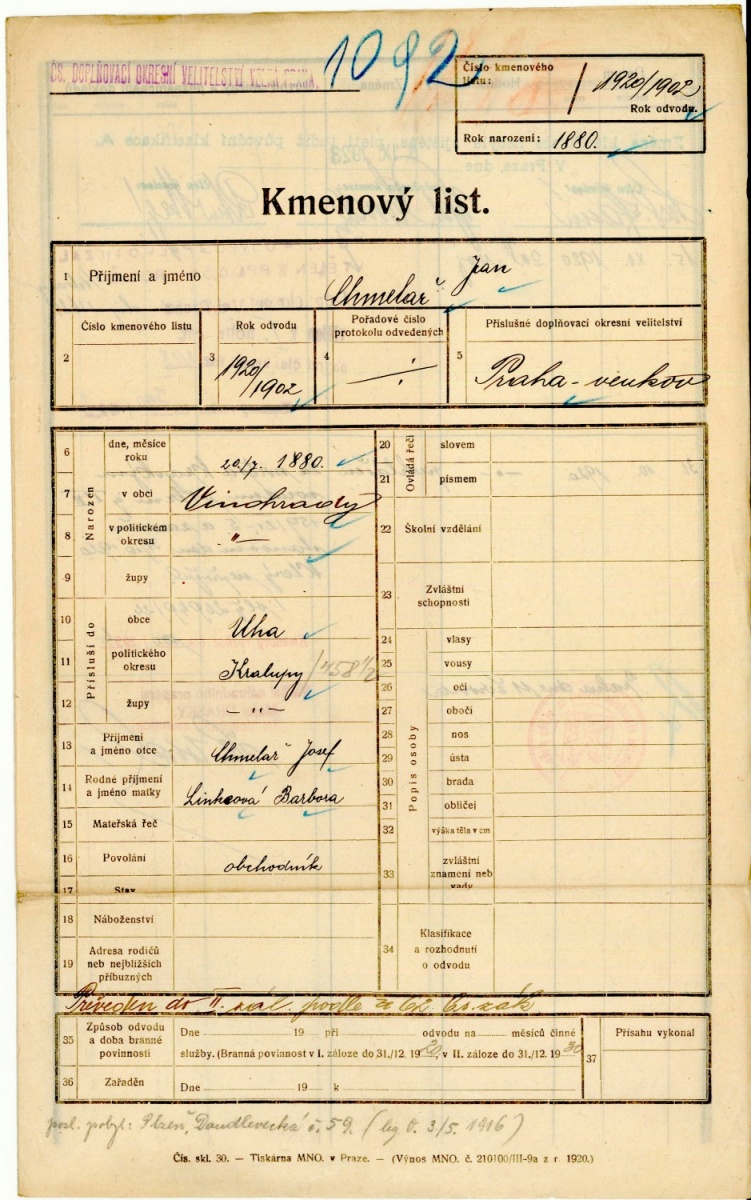 ČS. DOPLŇOVACÍ OKRESNÍ VELITELSTVÍ VELKÁ PRAHA.
1092
Číslo kmenového listu: / 1920/1902
Rok odvodu.
Rok narození: 1880.
Kmenový list.
1 Příjmení a jméno Chmelař Jan
2 Číslo kmenového listu
3 Rok odvodu 1920/1902
4 Pořadové číslo protokolu odvedených
5 Příslušné doplňovací okresní velitelství Praha-venkov
Narozen
6 dne, měsíce roku 20./7. 1880.
7 v obci Vinohrady
8 v politickém okresu -"-
9 župy
Přísluší do
10 obce Uha
11 politického okresu Kralupy / 458 1/2
12 župy -"-
13 Příjmení a jméno otce Chmelař Josef
14 Rodné příjmení a jméno matky Linhcová Barbora
15 Mateřská řeč
16 Povolání obchodník
17 Stav
18 Náboženství
19 Adresa rodičů neb nejbližších příbuzných
Ovládá řeči
20 slovem
21 písmem
22 Školní vzdělání
23 Zvláštní schopnosti
Popis osoby
24 vlasy
25 vousy
26 oči
27 obočí
28 nos
29 ústa
30 brada
31 obličej
32 výška těla v cm
33 zvláštní znamení neb vady
34 Klasifikace a rozhodnutí o odvodu
Převeden do II. zál. podle § 62 br. zák
35 Způsob odvodu a doba branné povinnosti
Dne 19 při odvodu na měsíců činné
služby. (Branná povinnost v I. záloze do 31./12. 1920, v II. záloze do 31./12. 1930
36 Zařaděn Dne 19 k
37 Přísahu vykonal
posl. pobyt: Plzeň, Doudlevecká č. 59. (leg. 3/5. 1916)
Čís. skl. 30. — Tiskárna MNO. v Praze. — (Výnos MNO. č. 210100/III-9a z r. 1920.)